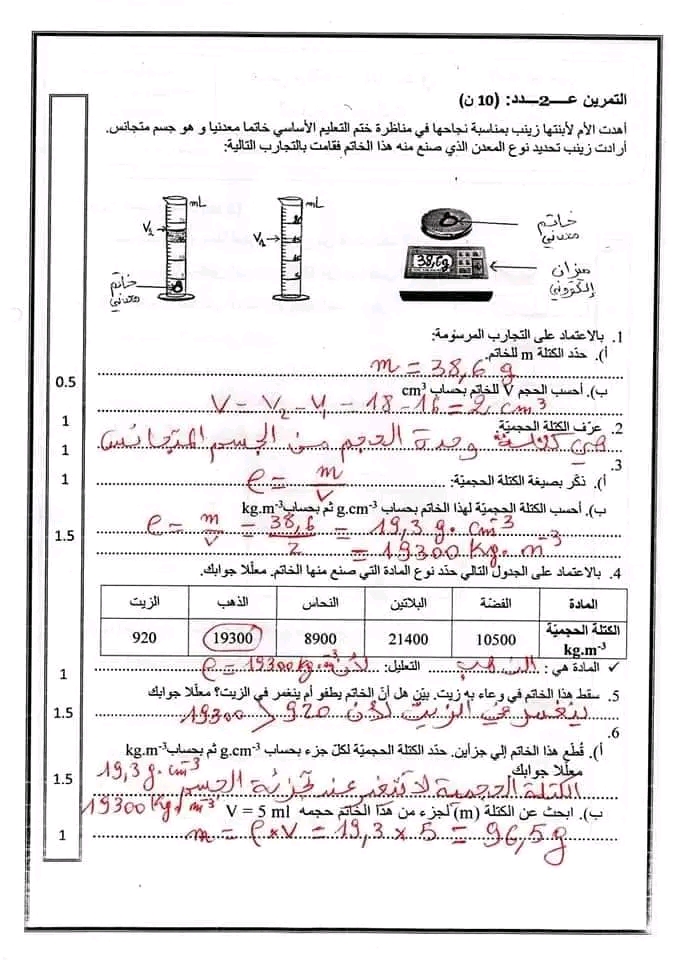 التمرين عـــ2ـــدد: (10 ن)
أهدت الأم لأبنتها زينب بمناسبة نجاحها في مناظرة ختم التعليم الأساسي خاتما معدنيا و هو جسم متجانس.
أرادت زينب تحديد نوع المعدن الذي صنع منه هذا الخاتم فقامت بالتجارب التالية:
mL
V₂
خاتم معدني
mL
V₁
خاتم معدني
38,6g
ميزان إلكتروني
1. بالاعتماد على التجارب المرسومة:
أ). حدّد الكتلة m للخاتم.
m = 38,6 g
0.5
ب). أحسب الحجم V للخاتم بحساب cm³
V = V₂ - V₁ = 18 - 16 = 2 cm³
1
2. عرّف الكتلة الحجميّة
هي كتلة وحدة الحجم من الجسم المتجانس
1
3.
أ). ذكّر بصيغة الكتلة الحجميّة: ρ = m/V
1
ب). أحسب الكتلة الحجميّة لهذا الخاتم بحساب g.cm⁻³ ثم بحساب kg.m⁻³
ρ = m/V = 38,6/2 = 19,3 g. cm⁻³
= 19300 Kg. m⁻³
1.5
4. بالاعتماد على الجدول التالي حدّد نوع المادة التي صنع منها الخاتم. معلّلا جوابك.
المادة الفضّة البلاتين النحاس الذهب الزيت
الكتلة الحجميّة kg.m⁻³ 10500 21400 8900 19300 920
✓ المادة هي: الذهب التعليل: لأن ρ = 19300 kg.m⁻³
1
5. سقط هذا الخاتم في وعاء به زيت. بيّن هل أنّ الخاتم يطفو أم ينغمر في الزيت؟ معلّلا جوابك
ينغمر في الزيت لأن 920 < 19300
1.5
6.
أ). قُطّع هذا الخاتم إلي جزأين. حدّد الكتلة الحجميّة لكلّ جزء بحساب g.cm⁻³ ثم بحساب kg.m⁻³
معلّلا جوابك
19,3 g. cm⁻³
الكتلة الحجمية لا تتغير عند تجزئة الجسم
19300 Kg. m⁻³
1.5
ب). ابحث عن الكتلة (m) لجزء من هذا الخاتم حجمه V = 5 ml
m = ρ × V = 19,3 × 5 = 96,5 g
1